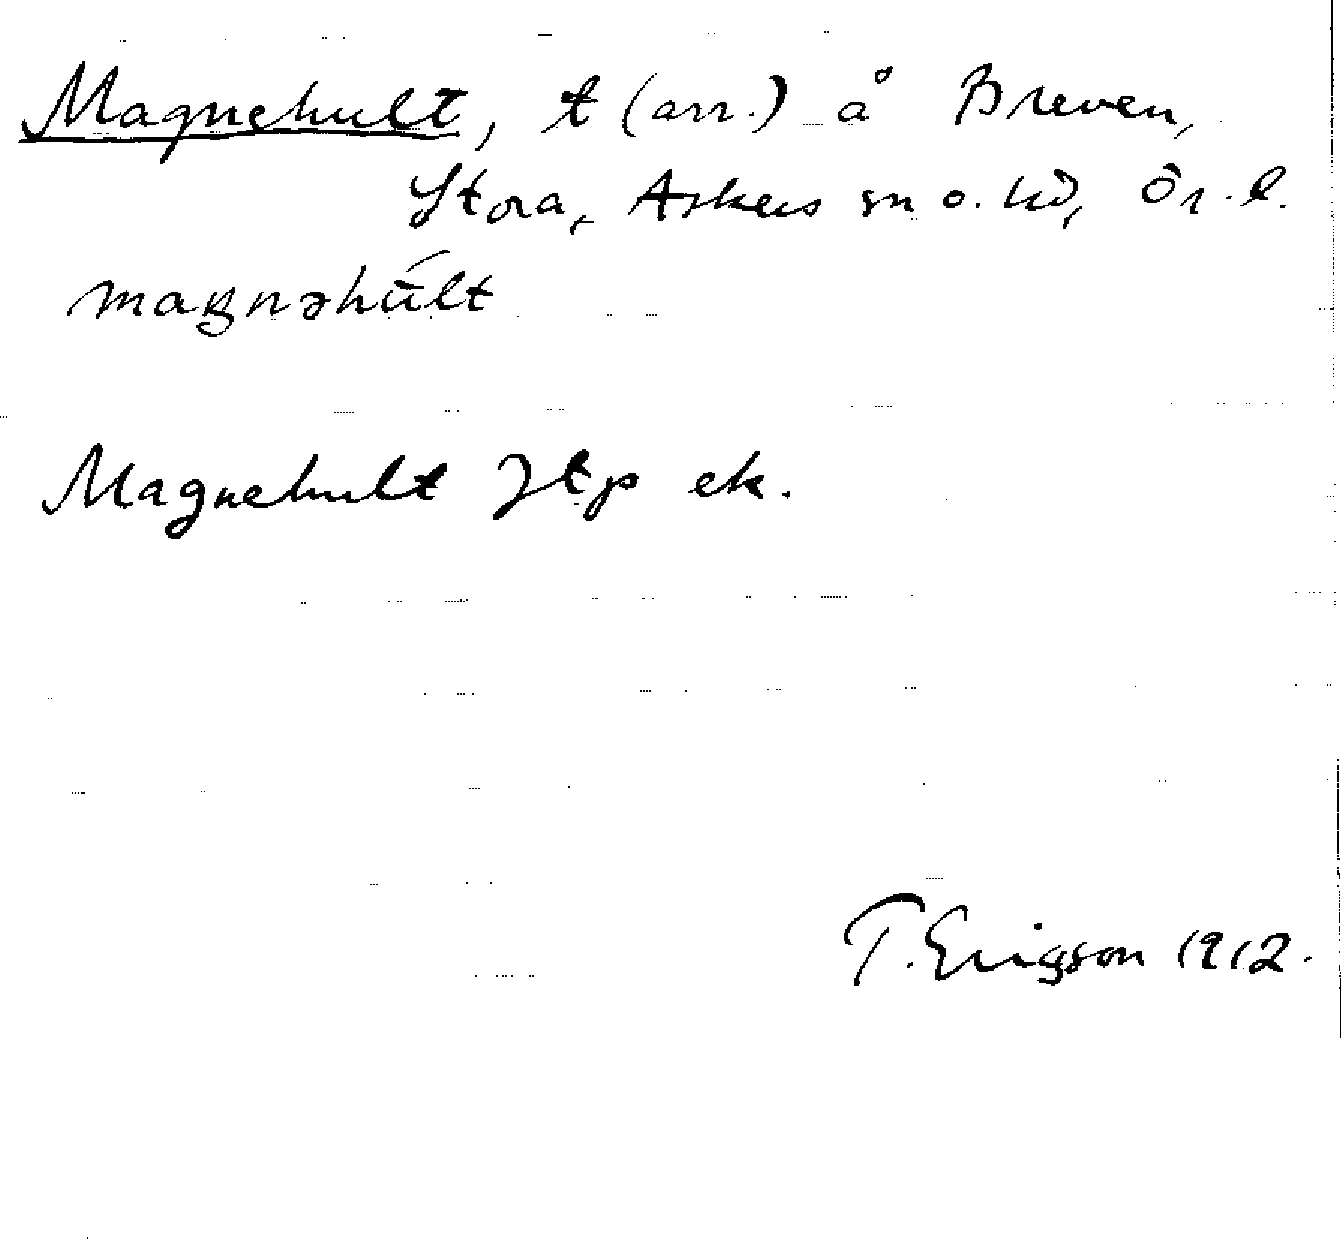 Magnehult, t (arr.) å Breven,
Stora, Askers sn o. hd, Ör. l.
magnəhúlt
Magnehult Jtp ek.
T. Ericsson 1912.